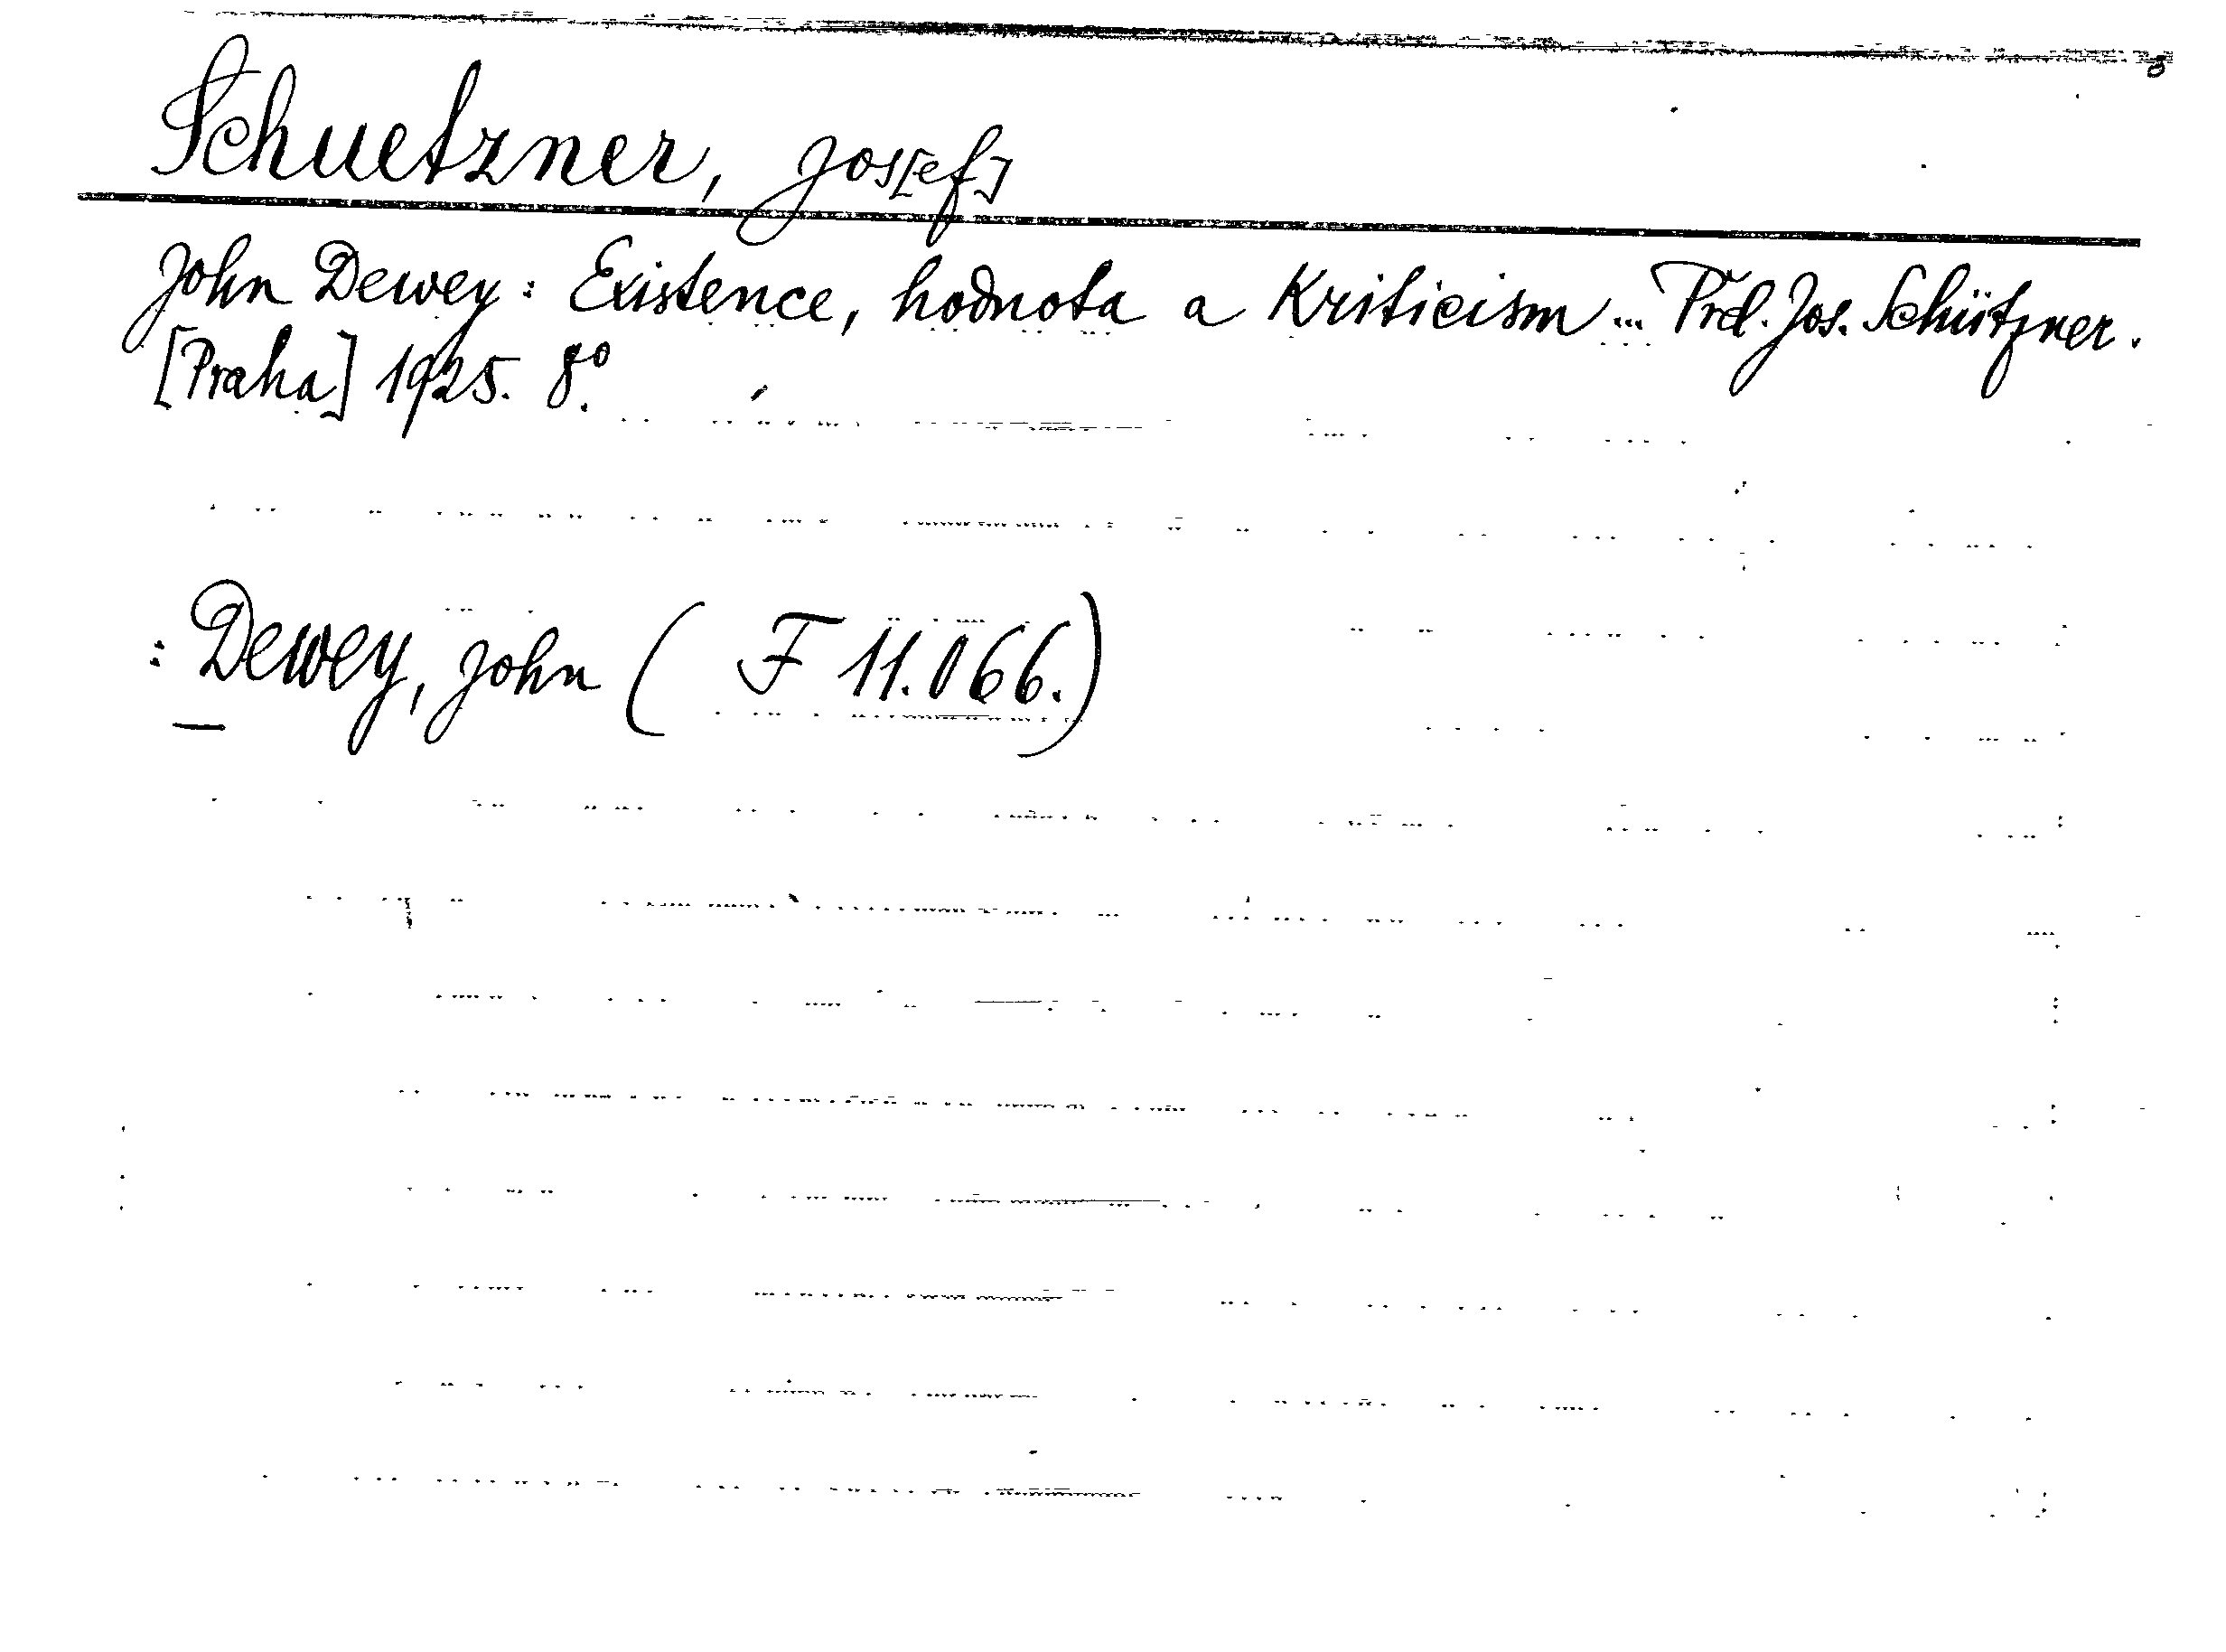 Schuetzner, Jos[ef]
John Dewey: Existence, hodnota a Kriticism... Přel. Jos. Schützner.
[Praha] 1925. 8°.
: Dewey, John ( F 11.066.)